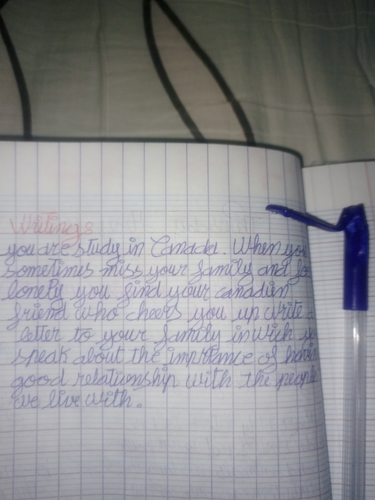 Writing:
you are study in Canada. When you
sometimes miss your family and
lonely you find your canadian
friend who cheers you up write a
letter to your family in wich
speak about the imprtence of
good relationship with the people
we live with.